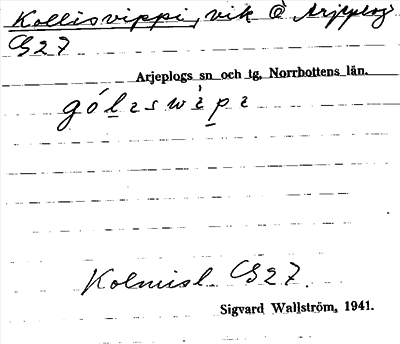 Kollisvippi, vik Ö Arjeplog
G27
Arjeplogs sn och tg, Norrbottens län.
Kolmisl. G27.
Sigvard Wallström, 1941.